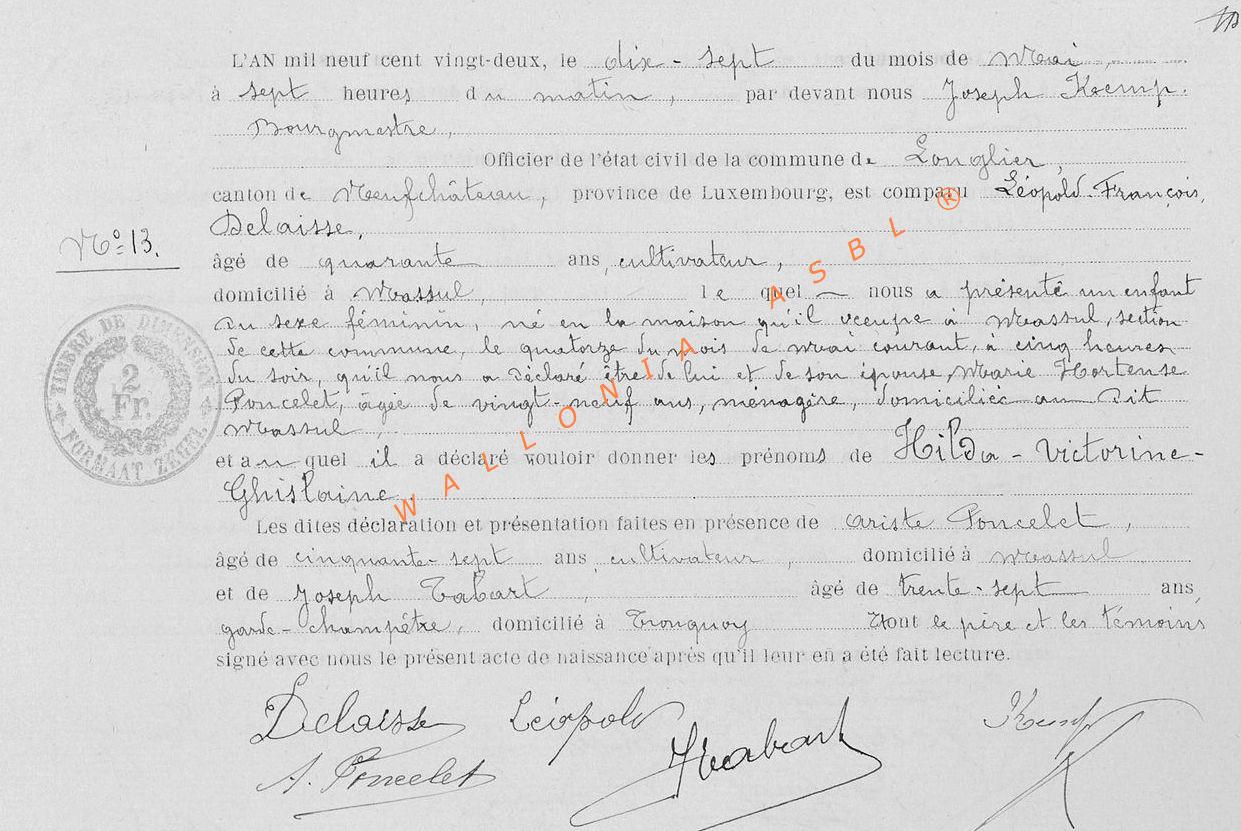 L'AN mil neuf cent vingt-deux, le dix-sept du mois de Mai
à sept heures du matin, par devant nous Joseph Kemp.
Bourgmestre,
Officier de l'état civil de la commune de Longlier,
canton de Neufchâteau, province de Luxembourg, est comparu Léopold-François,
Delaisse,
No 13.
âgé de quarante ans, cultivateur,
domicilié à Massul, le quel — nous a présenté un enfant
du sexe féminin, né en la maison qu'il occupe à Massul, section
de cette commune, le quatorze du mois de mai courant, à cinq heures
du soir, qu'il nous a déclaré être de lui et de son épouse, Marie Hortense
Poncelet, âgée de vingt-neuf ans, ménagère, domiciliée au dit
Massul,
et au quel il a déclaré vouloir donner les prénoms de Hilda-Victorine-
Ghislaine.
Les dites déclaration et présentation faites en présence de Ariste Poncelet,
âgé de cinquante-sept ans, cultivateur, domicilié à Massul
et de Joseph Tabart, âgé de trente-sept ans,
garde-champêtre, domicilié à Tronquoy Et ont le père et les témoins
signé avec nous le présent acte de naissance après qu'il leur en a été fait lecture.
Delaisse Léopold
A. Poncelet
Kemp
TIMBRE DE DIMENSION
2
Fr.
FORMAAT ZEGEL
WALLONIA ASBL ®